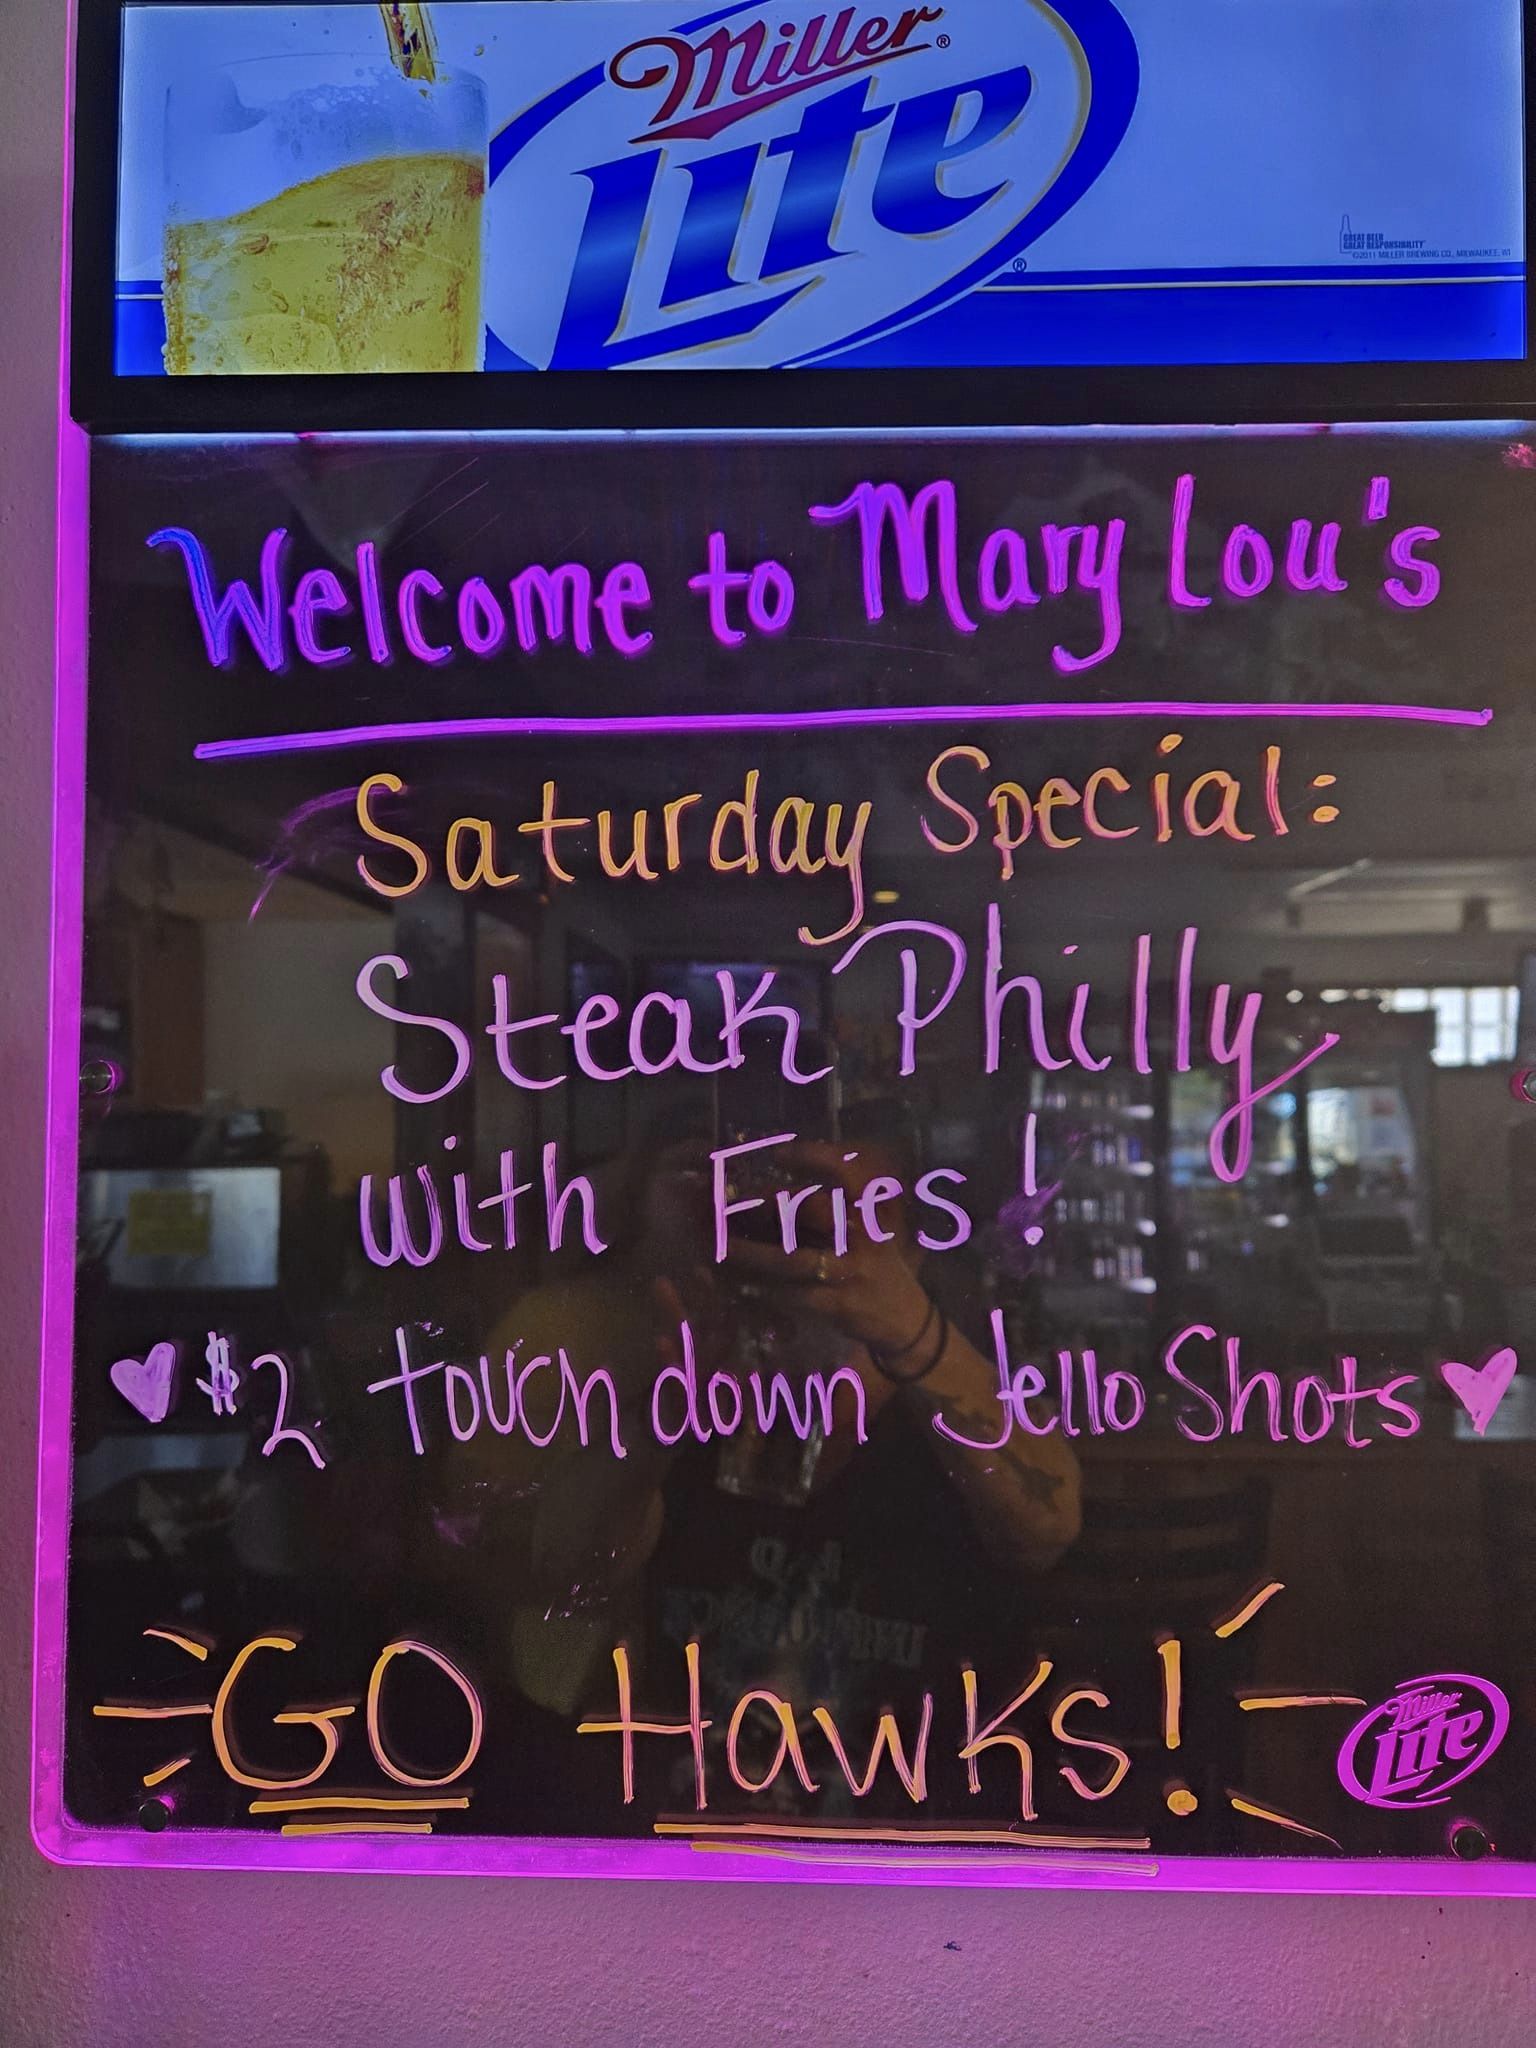 Miller®
Lite®
GREAT BEER
GREAT RESPONSIBILITY™
©2011 MILLER BREWING CO., MILWAUKEE, WI
Welcome to Mary Lou's
Saturday Special:
Steak Philly
with Fries!
♥ $2 Touchdown Jello Shots ♥
GO Hawks!
Miller
Lite